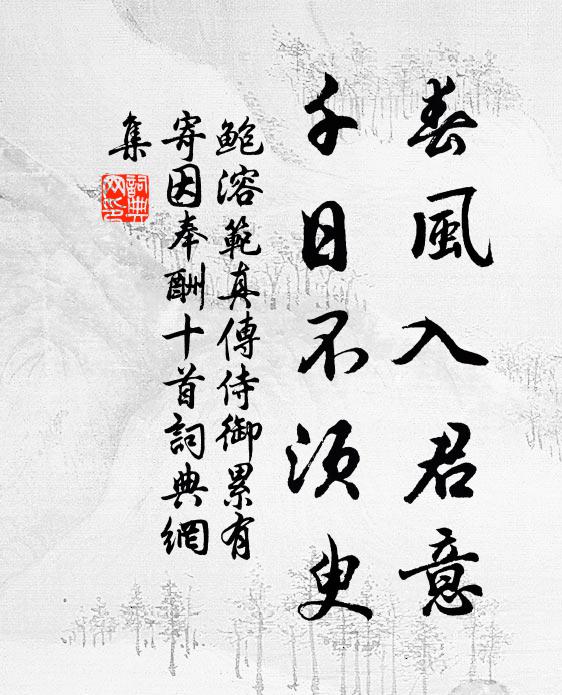 春風入君意
千日不須臾
鮑溶範真傳侍御累有
寄因奉酬十首詞典網
集
詞典
网印